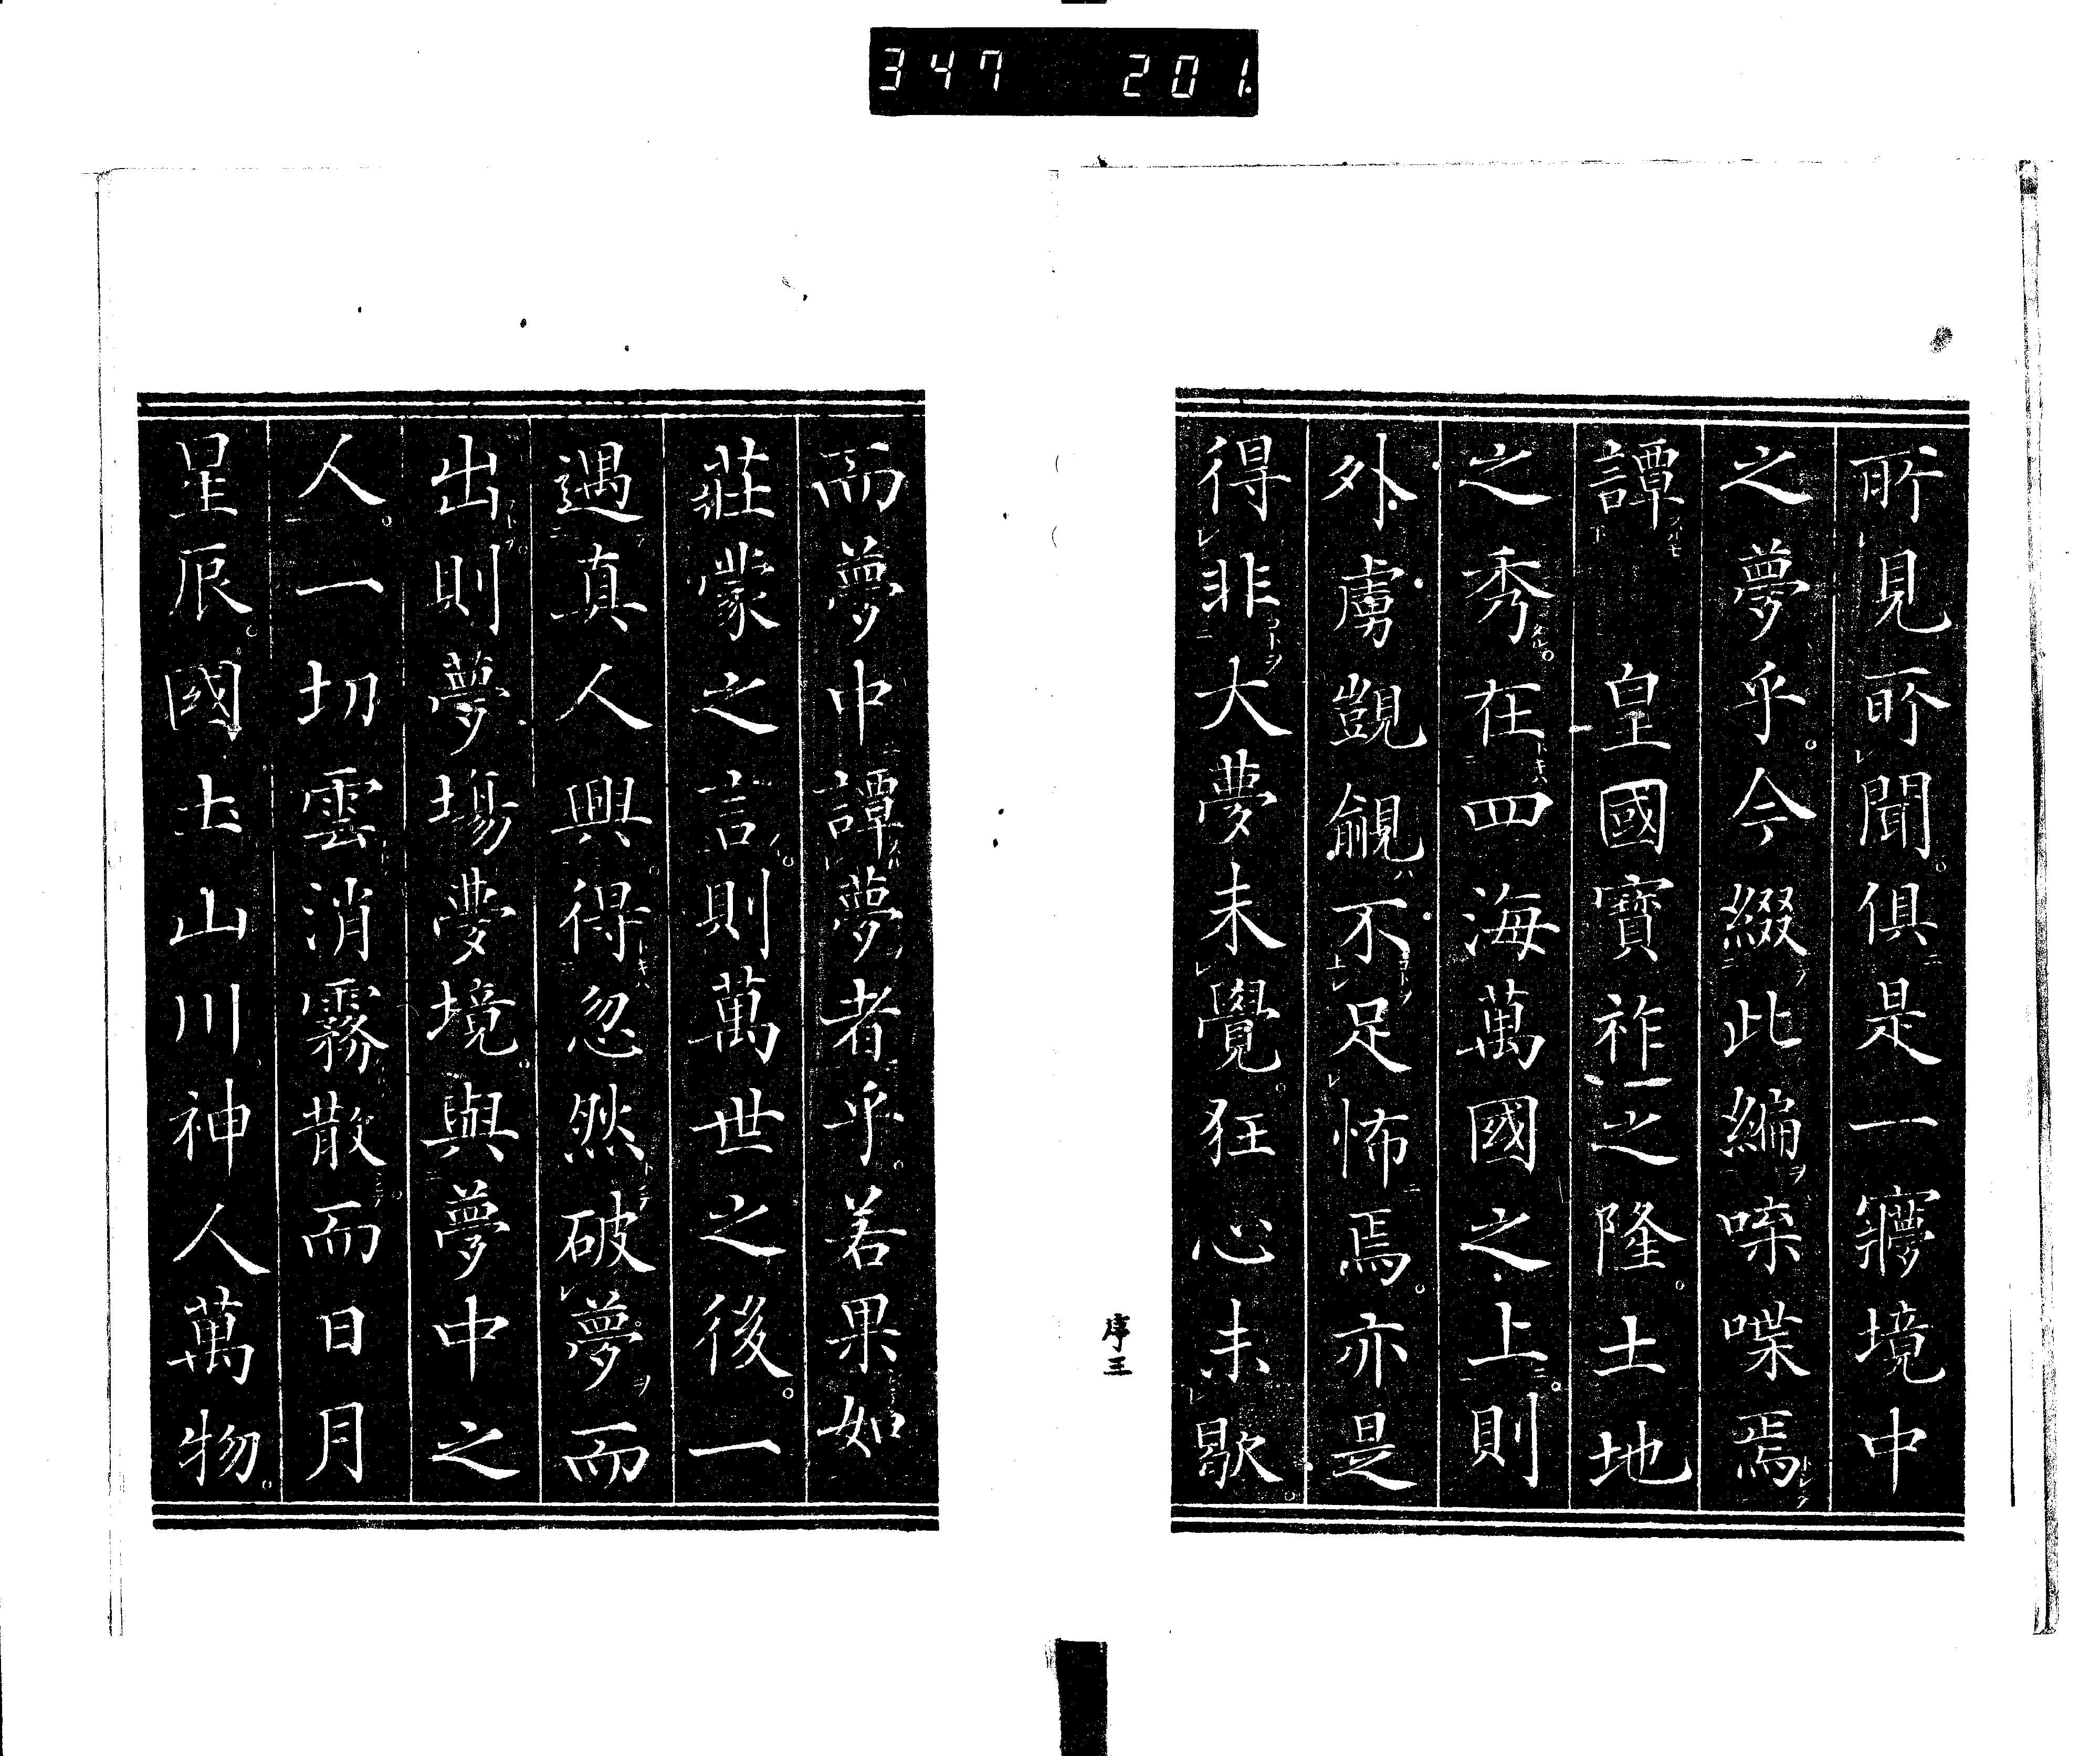 347 201.
所見所聞。俱是一㝱境中
之夢乎。今綴此編喋喋焉
譚 皇國寶祚之隆。土地
之秀。在四海萬國之上。則
外虜覬覦不足怖焉。亦是
得非大夢未覺。狂心未歇。
序三
而夢中譚夢者乎。若果如
莊蒙之言。則萬世之後。一
遇真人興。得忽然破夢而
出。則夢場夢境。與夢中之
人。一切雲消霧散。而日月
星辰。國土山川神人萬物。